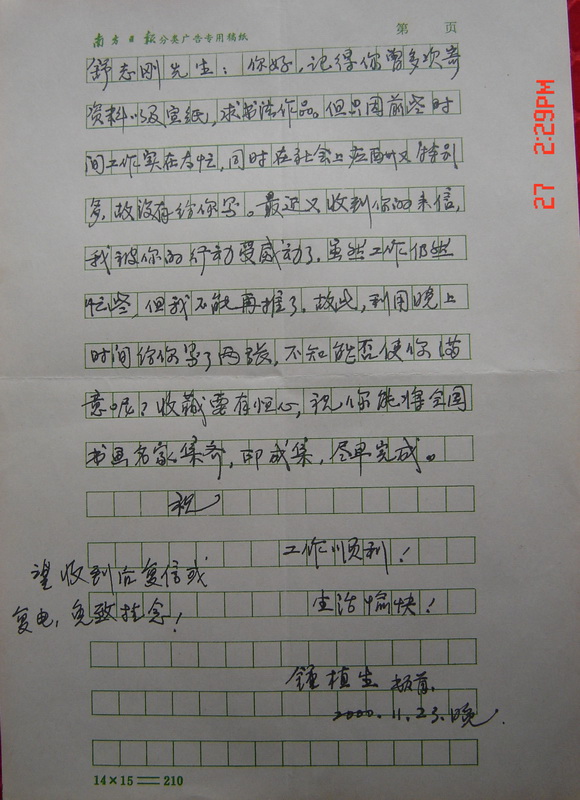 南方日报分类广告专用稿纸 第 页
舒志刚先生：你好，记得你曾多次寄
资料以及宣纸，求书法作品。但只因前些时
间工作实在太忙，同时在社会上应酬又特别
多，故没有给你写。最近又收到你的来信，
我被你的行动受感动了，虽然工作仍然
忙些，但我不能再推了，故此，利用晚上
时间给你写了两张，不知能否使你满
意呢？收藏要有恒心，祝你能将全国
书画名家集齐，印成集，尽早完成。
祝
工作顺利！
生活愉快！
望收到后复信或
复电，免致挂念！
钟植生 敬育
2000.11.23.晚
14×15＝210
27 2:29PM